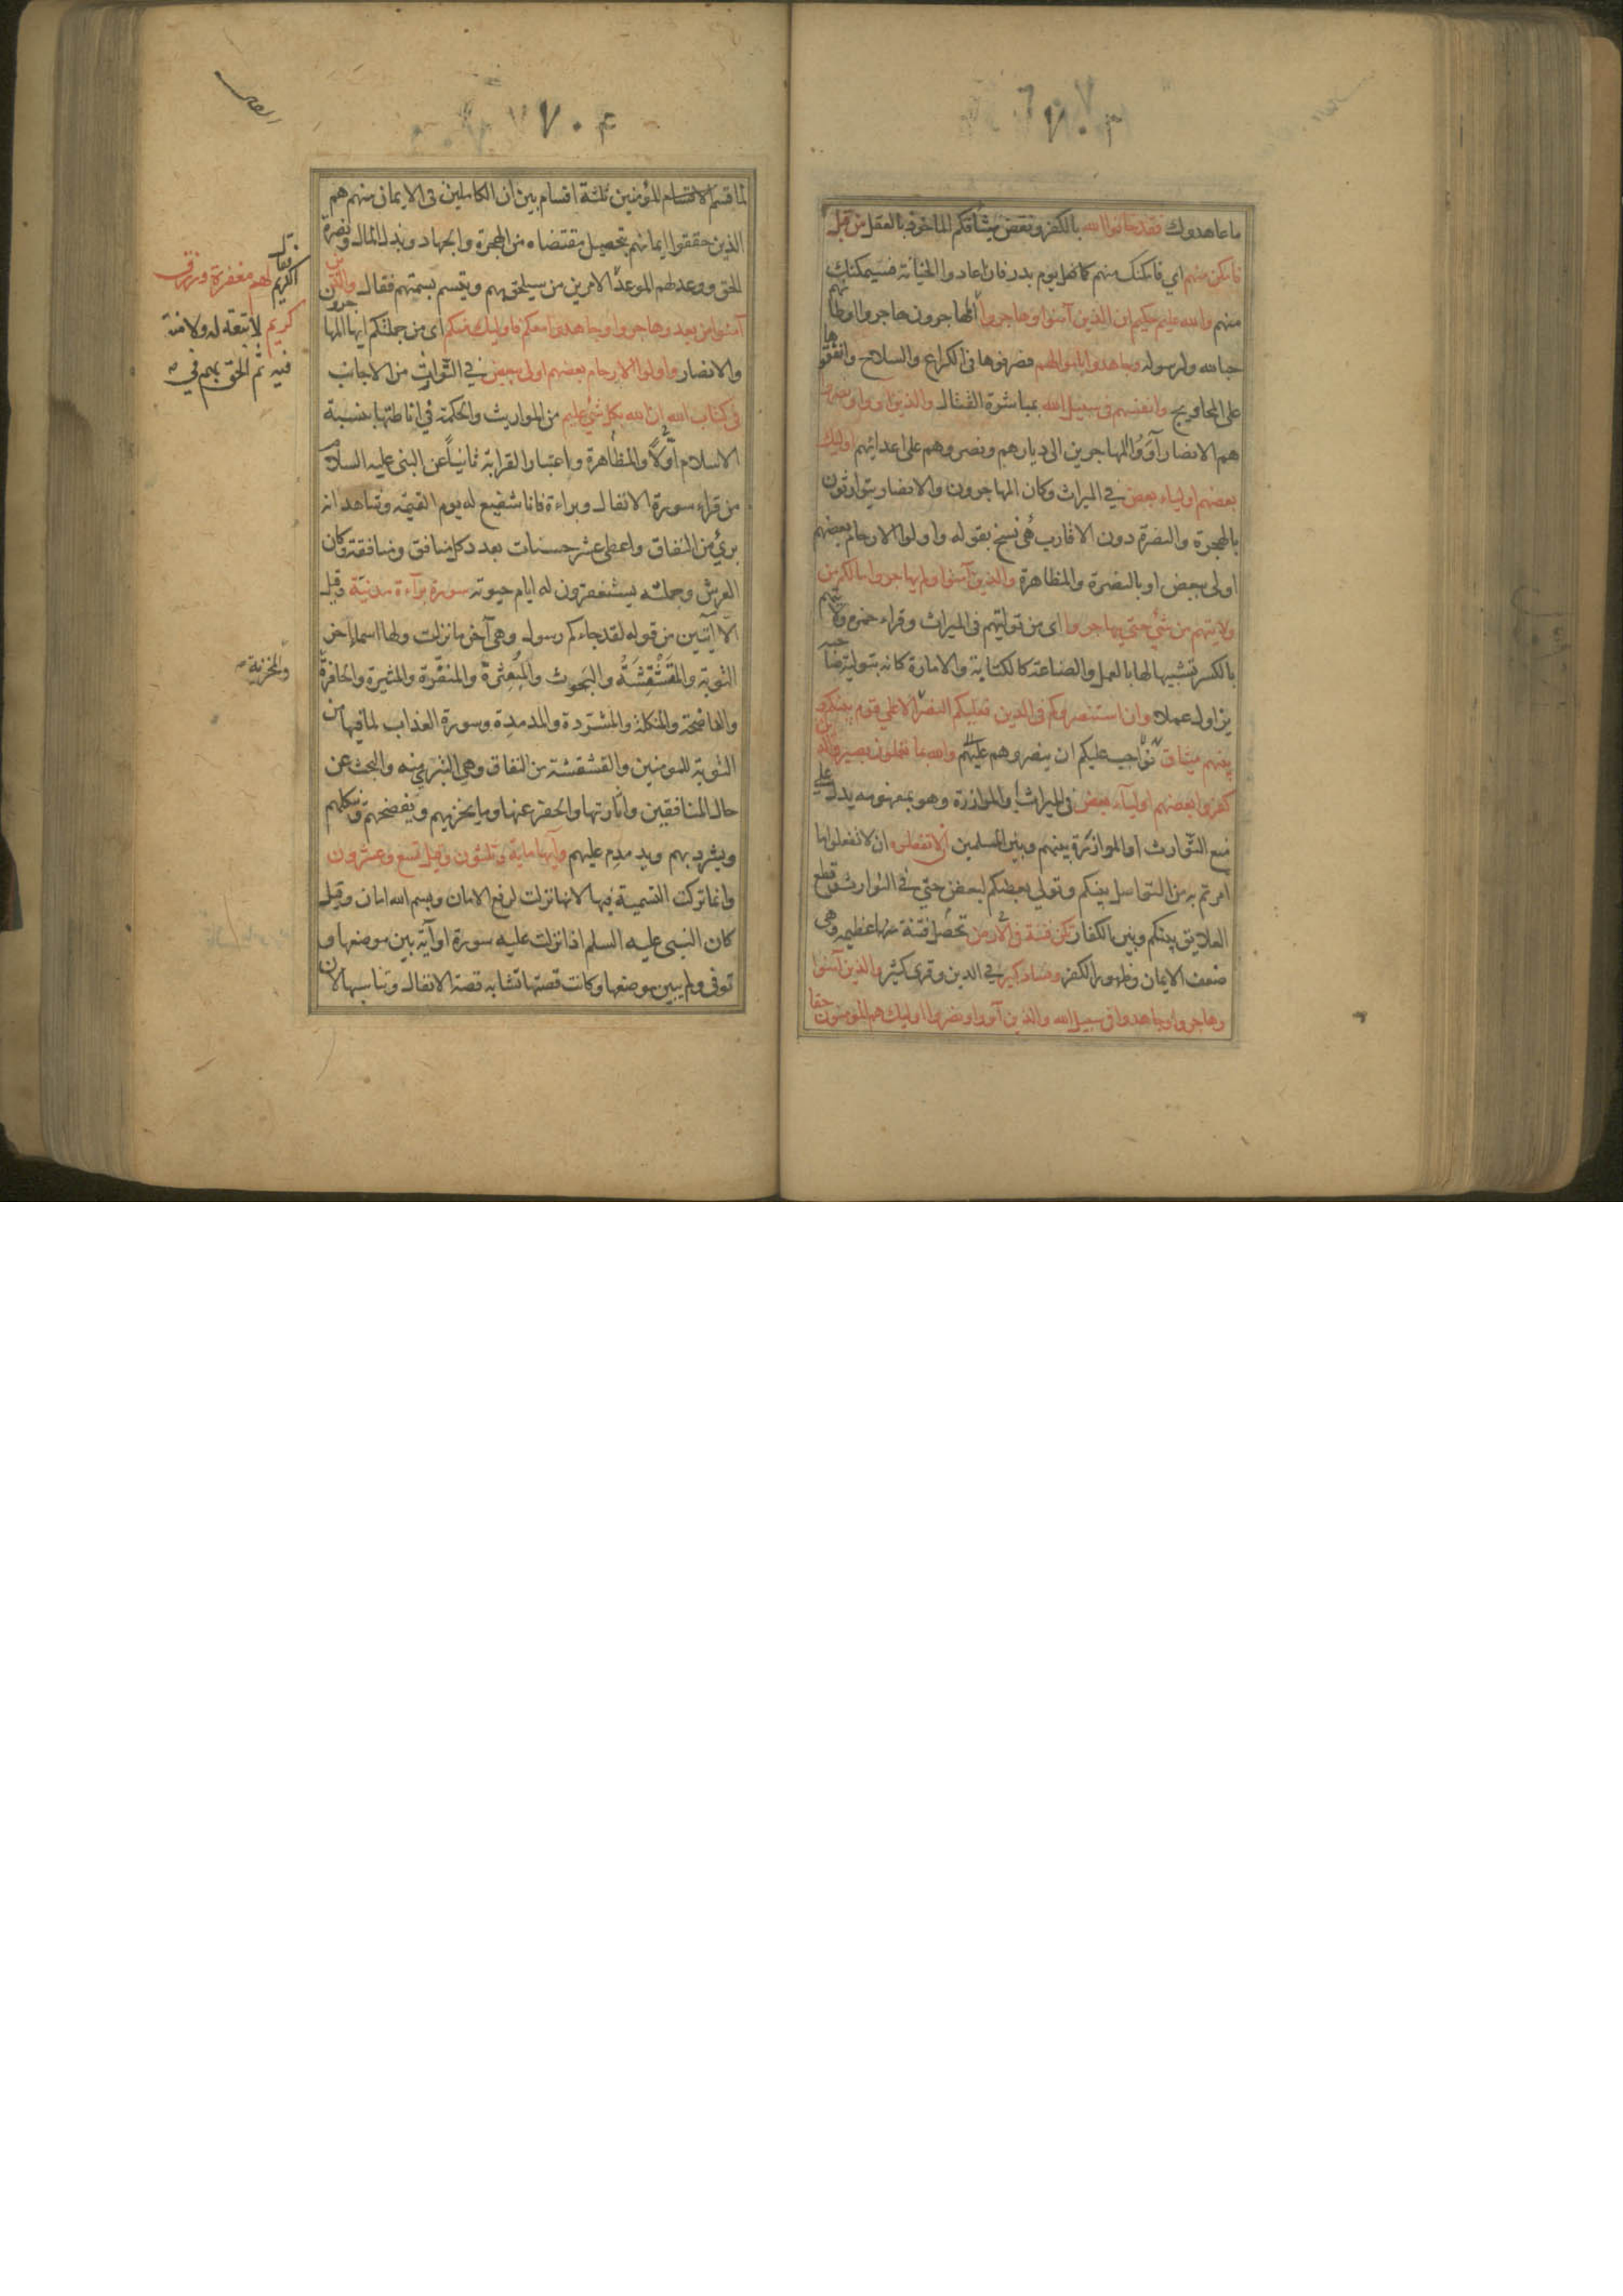 ما عاهدوك فقد خانوا الله بالكفر ونقض ميثاقكم الماخوذ بالعقل من قبل
فامكن منهم اي فامكنك منهم كما فعل يوم بدر فان اعادوا الخيانة فسيمكنك
منهم والله عليم حكيم ان الذين آمنوا وهاجروا المهاجرون هاجروا اوطانهم
حبا لله ولرسوله وجاهدوا باموالهم فصرفوها في الكراع والسلاح وانفقوها
على المحاويج وانفسهم في سبيل الله بمباشرة القتال والذين آووا ونصروا
هم الانصار آووا المهاجرين الى ديارهم ونصروهم على اعدائهم اوليك
بعضهم اولياء بعض في الميراث وكان المهاجرون والانصار يتوارثون
بالهجرة والنصرة دون الاقارب حتى نسخ بقوله واولوا الارحام بعضهم
اولى ببعض او بالنصرة والمظاهرة والذين آمنوا ولم يهاجروا ما لكم من
ولايتهم من شيء حتى يهاجروا اى من توليتهم في الميراث وقراء حمزه ولايتهم
بالكسر تشبيها لها بالعمل والصناعة كالكتابة والامارة كانه بتوليته صاحبه
يزاول عملا وان استنصروكم في الدين فعليكم النصر الا على قوم بينكم و
بينهم ميثاق فواجب عليكم ان ينصروهم عليهم والله بما تعملون بصير والذين
كفروا بعضهم اولياء بعض في الميراث والموازرة وهو بمفهومه يدل على
منع التوارث او الموازرة بينهم وبين المسلمين الا تفعلوه ان لا تفعلوا ما
امرتم به من التواصل بينكم وتولي بعضكم لبعض حتي في التوارث وقطع
العلايق بينكم وبين الكفار تكن فتنة في الارض تحصل فتنة فيها عظيمه وهي
ضعف الايمان وظهور الكفر وفساد كبير في الدين وقرئ كثير والذين آمنوا
وهاجروا وجاهدوا في سبيل الله والذين آووا ونصروا اوليك هم المومنون حقا
لما قسم الاقسام للمؤمنين ثلثة اقسام بين ان الكاملين في الايمان منهم هم
الذين حققوا ايمانهم بتحصيل مقتضاه من الهجرة والجهاد وبذل المال ونصرة
الحق ووعد لهم الموعد الامرين من سيلحق بهم ويتسم بسمتهم فقال والذين
آمنوا من بعد وهاجروا وجاهدوا معكم فاوليك منكم اى من جملتكم ايها المهاجرون
والانصار واولوا الارحام بعضهم اولى ببعض في التوارث من الاجانب
في كتاب الله ان الله بكل شيء عليم من المواريث والحكمة في اناطتها بنسبة
الاسلام اولا والمظاهرة واعتبار القرابة ثانيا عن النبي عليه السلام
من قراء سورة الانفال وبراءة فانا شفيع له يوم القيمة وشاهد انه
بريء من النفاق واعطى عشر حسنات بعدد كل منافق ومنافقة وكان
العرش وحملته يستغفرون له ايام حيوته سورة براءة مدنية وقيل
الا آيتين من قوله لقد جاءكم رسول وهي آخر ما نزلت ولها اسماء اخر
التوبة والمقشقشة والبحوث والمبعثرة والمنقرة والمثيرة والحافرة
والفاضحة والمنكلة والمشردة والمدمدة وسورة العذاب لما فيها من
التوبة للمومنين والقشقشة من النفاق وهي التبري منه والبحث عن
حال المنافقين واثارتها والحفر عنها وما يخزيهم ويفضحهم وينكلهم
ويشرد بهم ويدمدم عليهم وآيها مائة وثلثون وقيل تسع وعشرون
وانما تركت التسمية فيها لانها نزلت لرفع الامان وبسم الله امان وقيل
كان النبي عليه السلم اذا نزلت عليه سورة او آية بين موضعها و
توفي ولم يبين موضعها وكانت قصتها تشابه قصة الانفال وتناسبها لان
الكريم لهم مغفرة ورزق
كريم لا تبعة له ولا منة
فيه ثم الحق بهم في
والمخزية